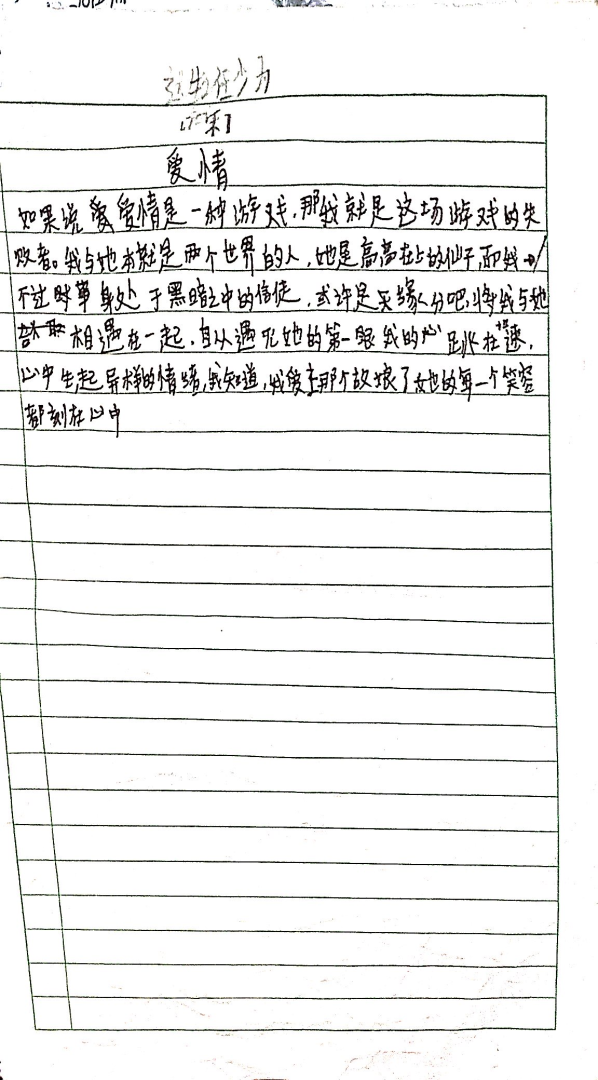 爱情
如果说爱爱情是一种游戏，那我就是这场游戏的失
败者。我与她本就是两个世界的人，她是高高在上的仙子，而我
不过时草身处于黑暗之中的信徒，或许是天缘人分吧，将我与她
相遇在一起，自从遇见她的第一眼我的心跳在加速，
心中生起异样的情绪，我知道，我爱上那个姑娘了她的每一个笑容
都刻在心中